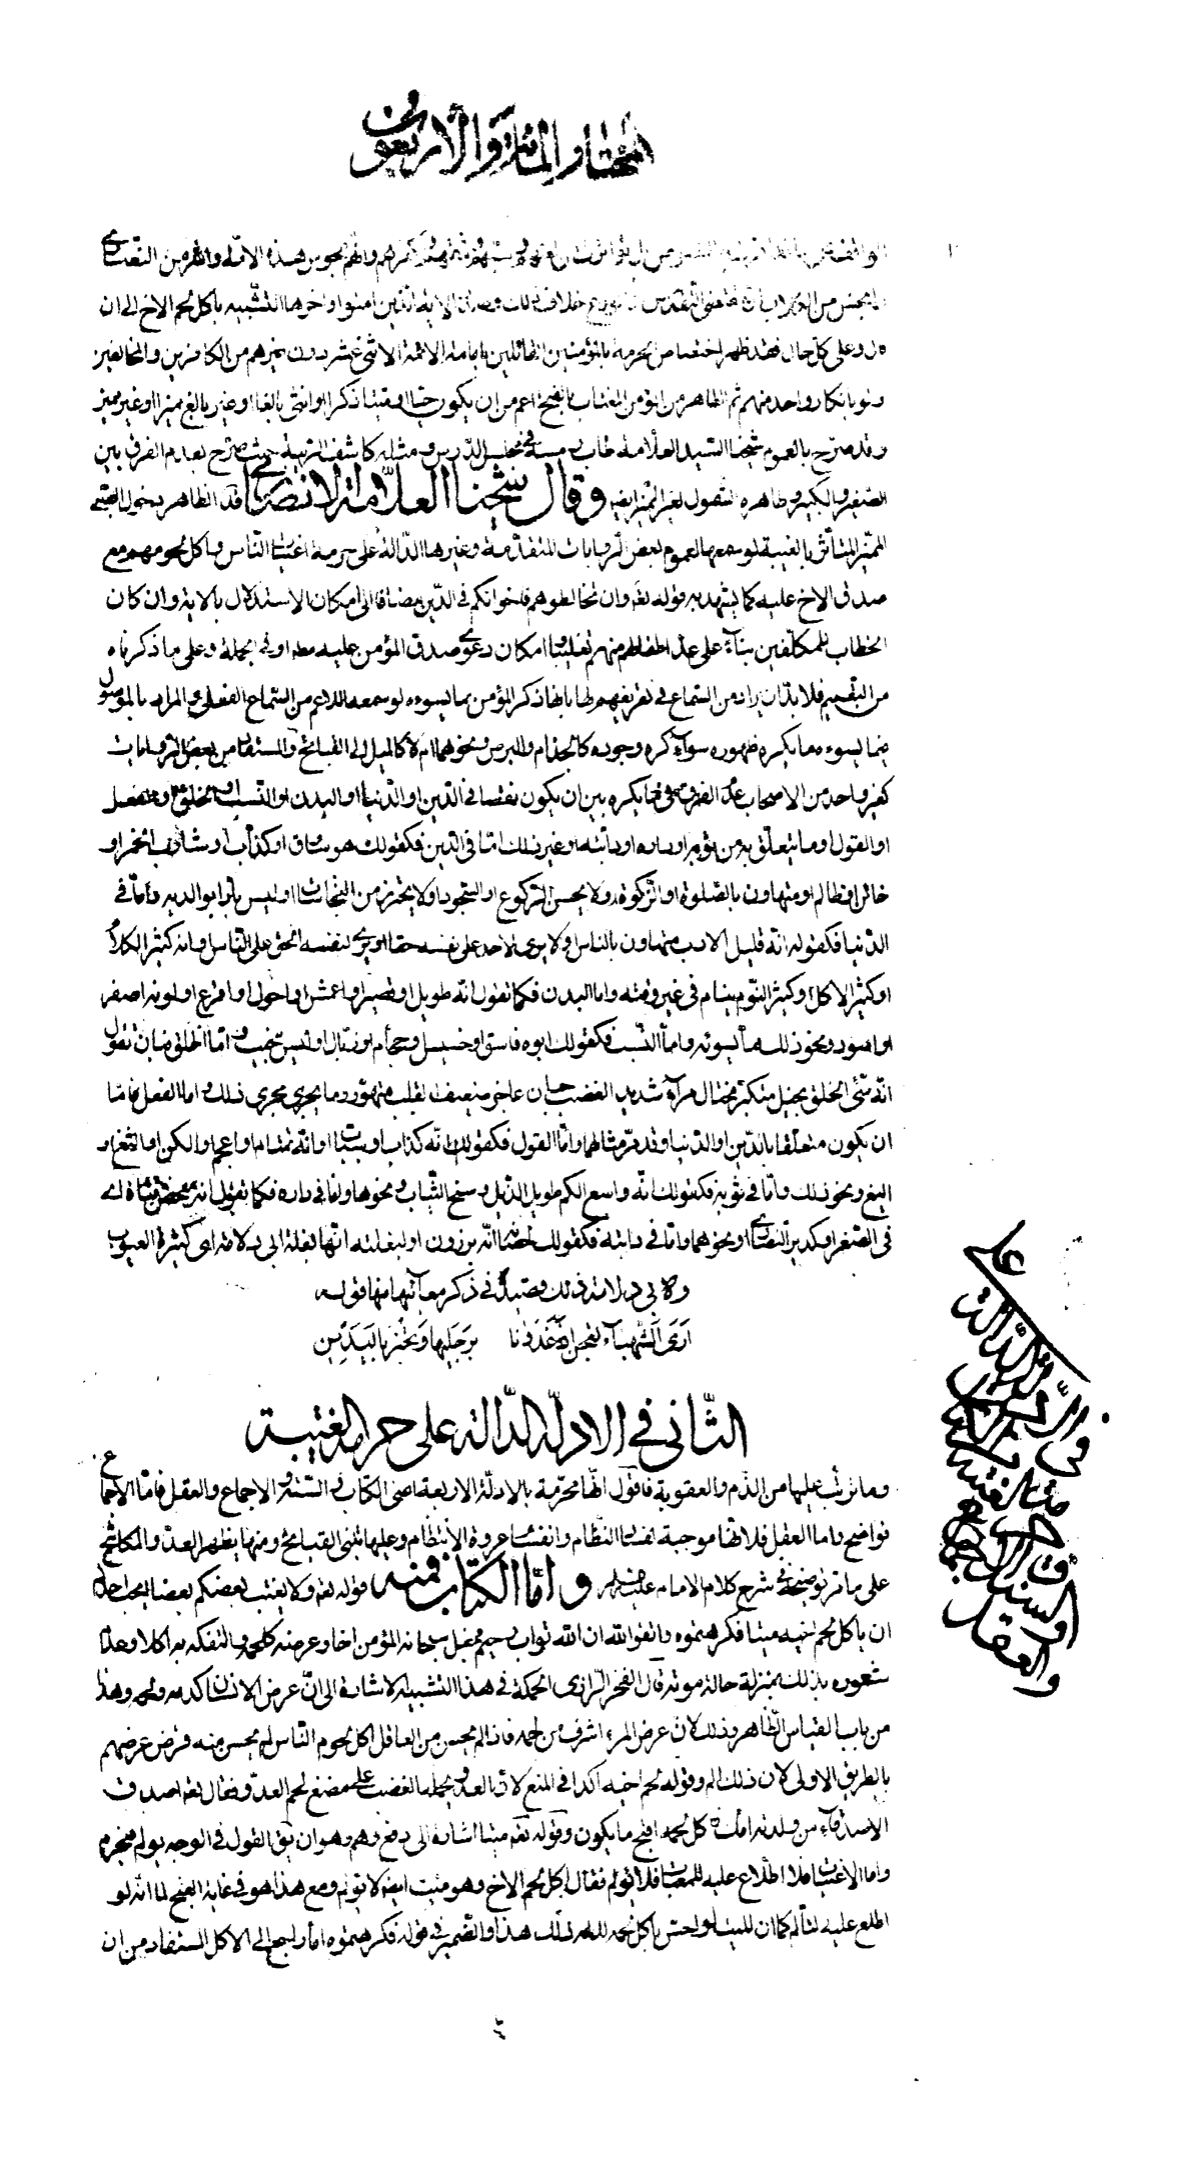 المختار المائة والأربعون
وعلى كل حال فقد ظهر اختصاص الحرمة بالمؤمنين القائلين بامامة الائمة الاثنى عشر دون غيرهم من الكافرين والمخالفين
ولو بانكار واحد منهم ثم الظاهر من المؤمن المغتاب بالفتح اعم من ان يكون حيا او ميتا ذكرا او انثى بالغا او غير بالغ مميزا او غير مميز
وقد صرح بالعموم شيخنا السيد العلامة طاب رمسه في مجلس الدرس ومثله كاشف الريبة حيث صرح بعدم الفرق بين
الصغير والكبير وظاهره الشمول لغير المميز ايضا وقال شيخنا العلامة الانصارى قده الظاهر دخول الصبى
المميز المتأثر بالغيبة لو سمعها لعموم بعض الروايات المتقدمة وغيرها الدالة على حرمة اغتياب الناس واكل لحومهم مع
صدق الاخ عليه كما يشهد به قوله تعم وان تخالطوهم فاخوانكم في الدين مضافا الى امكان الاستدلال بالاية وان كان
الخطاب للمكلفين بناء على عد اطفالهم منهم تغليبا وامكان دعوى صدق المؤمن عليه مط او في الجملة وعلى ما ذكرناه
من التعميم فلا بد ان يراد من السماع في تعريفهم لها بانها ذكر المؤمن بما يسوءه لو سمعه الاعم من السماع الفعلى والمراد بالموصول
فيما يسوءه ما يكره ظهوره سواء كره وجوده كالجذام والبرص ونحوهما ام لا كالميل الى القبايح والمستفاد من بعض الروايات
كغير واحد من الاصحاب عدم الفرق في ما يكره بين ان يكون نقصا في الدين او الدنيا او البدن او النسب او الخلق او الفعل
او القول او ما يتعلق به من ثوبه او داره او دابته او غير ذلك اما في الدين فكقولك هو سارق او كذاب او شارب الخمر او
خائن او ظالم او متهاون بالصلوة او الزكوة او لا يحسن الركوع او السجود او لا يحترز من النجاسات او ليس بارا بوالديه واما في
الدنيا فكقوله انه قليل الادب متهاون بالناس او لا يرى لاحد على نفسه حقا او يرى لنفسه الحق على الناس او انه كثير الكلام
او كثير الاكل او كثير النوم ينام في غير وقته واما البدن فكما تقول انه طويل او قصير او اعمش او احول او اقرع او لونه اصفر
او اسود ونحو ذلك مما يسوئه واما النسب فكقولك ابوه فاسق او خسيس او حجام او زبال او ليس بنجيب واما الخلق فبان تقول
انه سيئ الخلق بخيل متكبر مختال مراء شديد الغضب جبان عاجز ضعيف القلب متهور وما يجرى مجرى ذلك واما الفعل فاما
ان يكون متعلقا بالدين او الدنيا وقد مر مثالهما واما القول فكقولك انه كذاب او سباب او انه تمتام او اعجم او الكن او الثغ او
اليغ ونحو ذلك واما في ثوبه فكقولك انه واسع الكم طويل الذيل وسخ الثياب ونحوها واما في داره فكما تقول انه مفحص قطاة اى
في الصغر او كدير النصارى او نحوهما واما في دابته فكقولك لحصانه انه برذون او لبغلته انها بغلة ابى دلامة اى كثيرة العيوب
ولابى دلامة ذلك قصيدة في ذكر معائبها منها قوله
ارى الشهباء تعجن اذ غدونا برجليها وتخبز باليدين
الثانى في الادلة الدالة على حرمة الغيبة
وما ترتب عليها من الذم والعقوبة فاقول انها محرمة بالادلة الاربعة اعنى الكتاب والسنة والاجماع والعقل فاما الاجماع
فواضح واما العقل فلانها موجبة لفساد النظام وانفصام عروة الانتظام وعليها تبنى القبائح ومنها يظهر العدو المكاشح
على ما مر توضيحه في شرح كلام الامام عليه السلام واما الكتاب فمنه قوله تعم ولا يغتب بعضكم بعضا ايحب احدكم
ان ياكل لحم اخيه ميتا فكرهتموه واتقوا الله ان الله تواب رحيم فجعل سبحانه المؤمن اخا وعرضه كلحمه والتفكه به اكلا وعدم
شعوره بذلك بمنزلة حالة موته قال الفخر الرازى الحكمة في هذا التشبيه الاشارة الى ان عرض الانسان كدمه ولحمه وهذا
من باب القياس الظاهر وذلك لان عرض المرء اشرف من لحمه فاذا لم يحسن من العاقل اكل لحوم الناس لم يحسن منه قرض عرضهم
بالطريق الاولى لان ذلك الم وقوله لحم اخيه اكد في المنع لان العدو يحمله الغضب على مضغ لحم العدو فقال تعم اصدق
الاصدقاء من ولدته امك فاكل لحمه اقبح ما يكون وقوله تعم ميتا اشارة الى دفع وهم وهو ان يق القول في الوجه يولم فيحرم
واما الاغتياب فلا اطلاع عليه للمغتاب فلا يولم فقال اكل لحم الاخ وهو ميت ايضا لا يولم ومع هذا هو في غاية القبح لما انه لو
اطلع عليه لتألم كما ان الميت لو احس باكل لحمه لالمه ذلك هذا والضمير في قوله فكرهتموه اما راجع الى الاكل المستفاد من ان